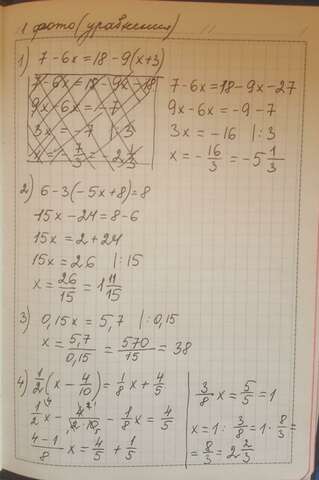 1 фото (уравнения)
1) 7 - 6x = 18 - 9(x+3)
7 - 6x = 18 - 9x - 18
9x - 6x = -7
3x = -7 | :3
x = -7/3 = -2 1/3
7 - 6x = 18 - 9x - 27
9x - 6x = -9 - 7
3x = -16 | :3
x = -16/3 = -5 1/3
2) 6 - 3(-5x + 8) = 8
15x - 24 = 8 - 6
15x = 2 + 24
15x = 26 | :15
x = 26/15 = 1 11/15
3) 0,15x = 5,7 | :0,15
x = 5,7/0,15 = 570/15 = 38
4) 1/2 (x - 4/10) = 1/8 x + 4/5
1/2 x - 4/2·10 - 1/8 x = 4/5
4-1/8 x = 4/5 + 1/5
3/8 x = 5/5 = 1
x = 1 : 3/8 = 1 · 8/3 =
= 8/3 = 2 2/3